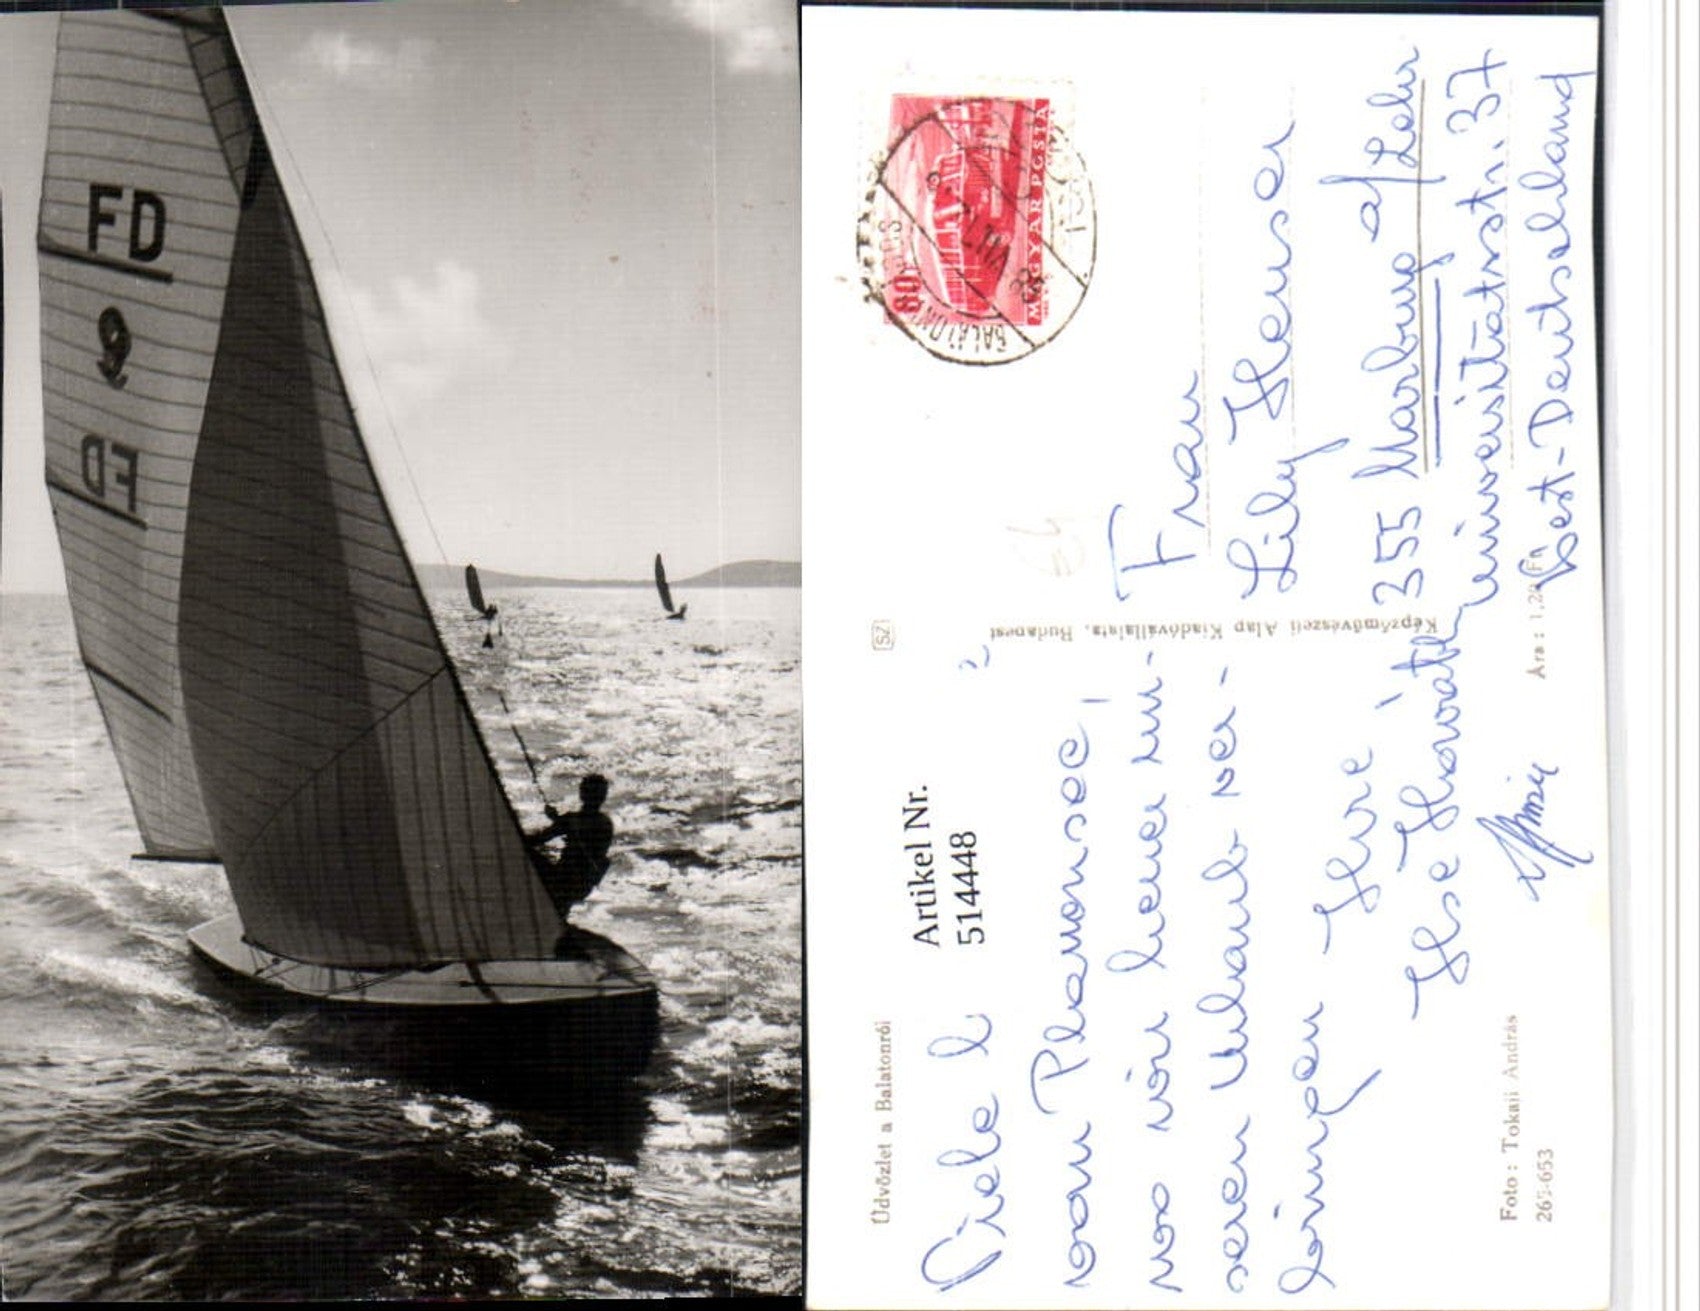 FD
9
FD
Üdvözlet a Balatonról
Artikel Nr.
514448
Liebe
vom Plattensee,
wo wir heuer un-
seren Urlaub ver-
bringen Ihre
Ilse Horváth
Foto: Tokaji András
265-653
Képzőművészeti Alap Kiadóvállalata, Budapest
Ára: 1,20 Ft
SZ
MAGYAR POSTA
80f
Frau
Lily Heuser
355 Marburg a/Lahn
Universitätsstr. 37
West-Deutschland